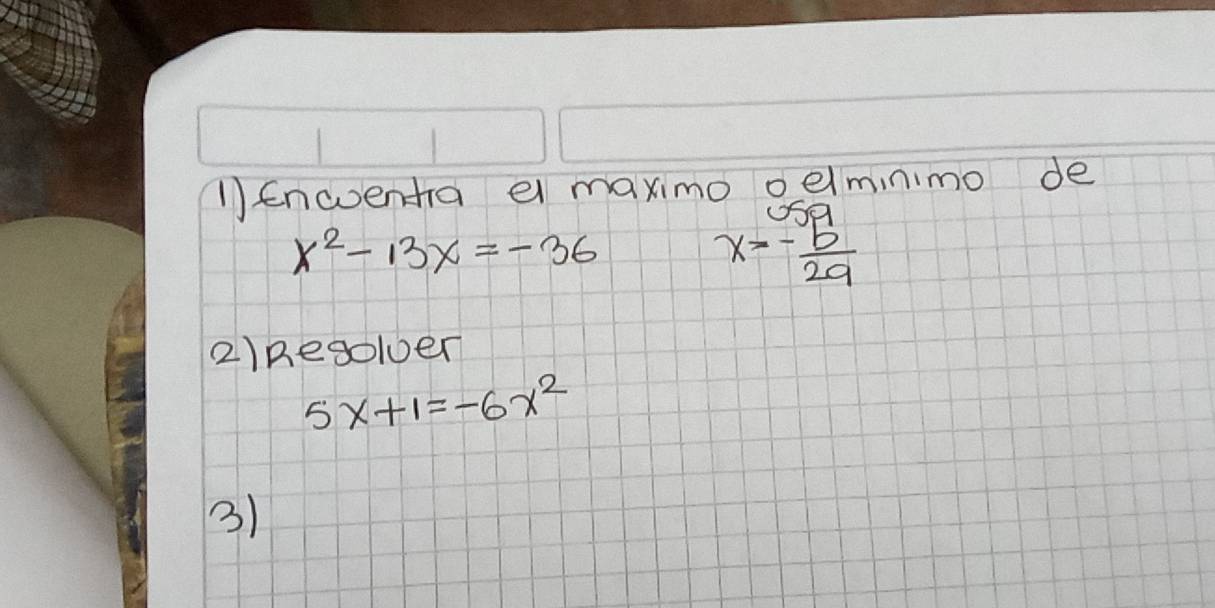 1) Encuentra el maximo o el minimo de
usa
x² - 13x = -36 x = -b/2a
2) Resolver
5x + 1 = -6x²
3)